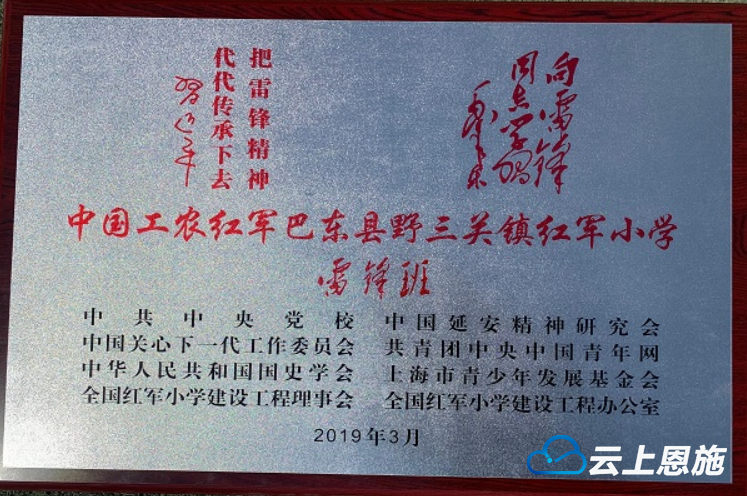 向雷锋
同志学习
毛泽东
把雷锋精神
代代传承下去
习近平
中国工农红军巴东县野三关镇红军小学
雷锋班
中共中央党校 中国延安精神研究会
中国关心下一代工作委员会 共青团中央中国青年网
中华人民共和国国史学会 上海市青少年发展基金会
全国红军小学建设工程理事会 全国红军小学建设工程办公室
2019年3月
云上恩施